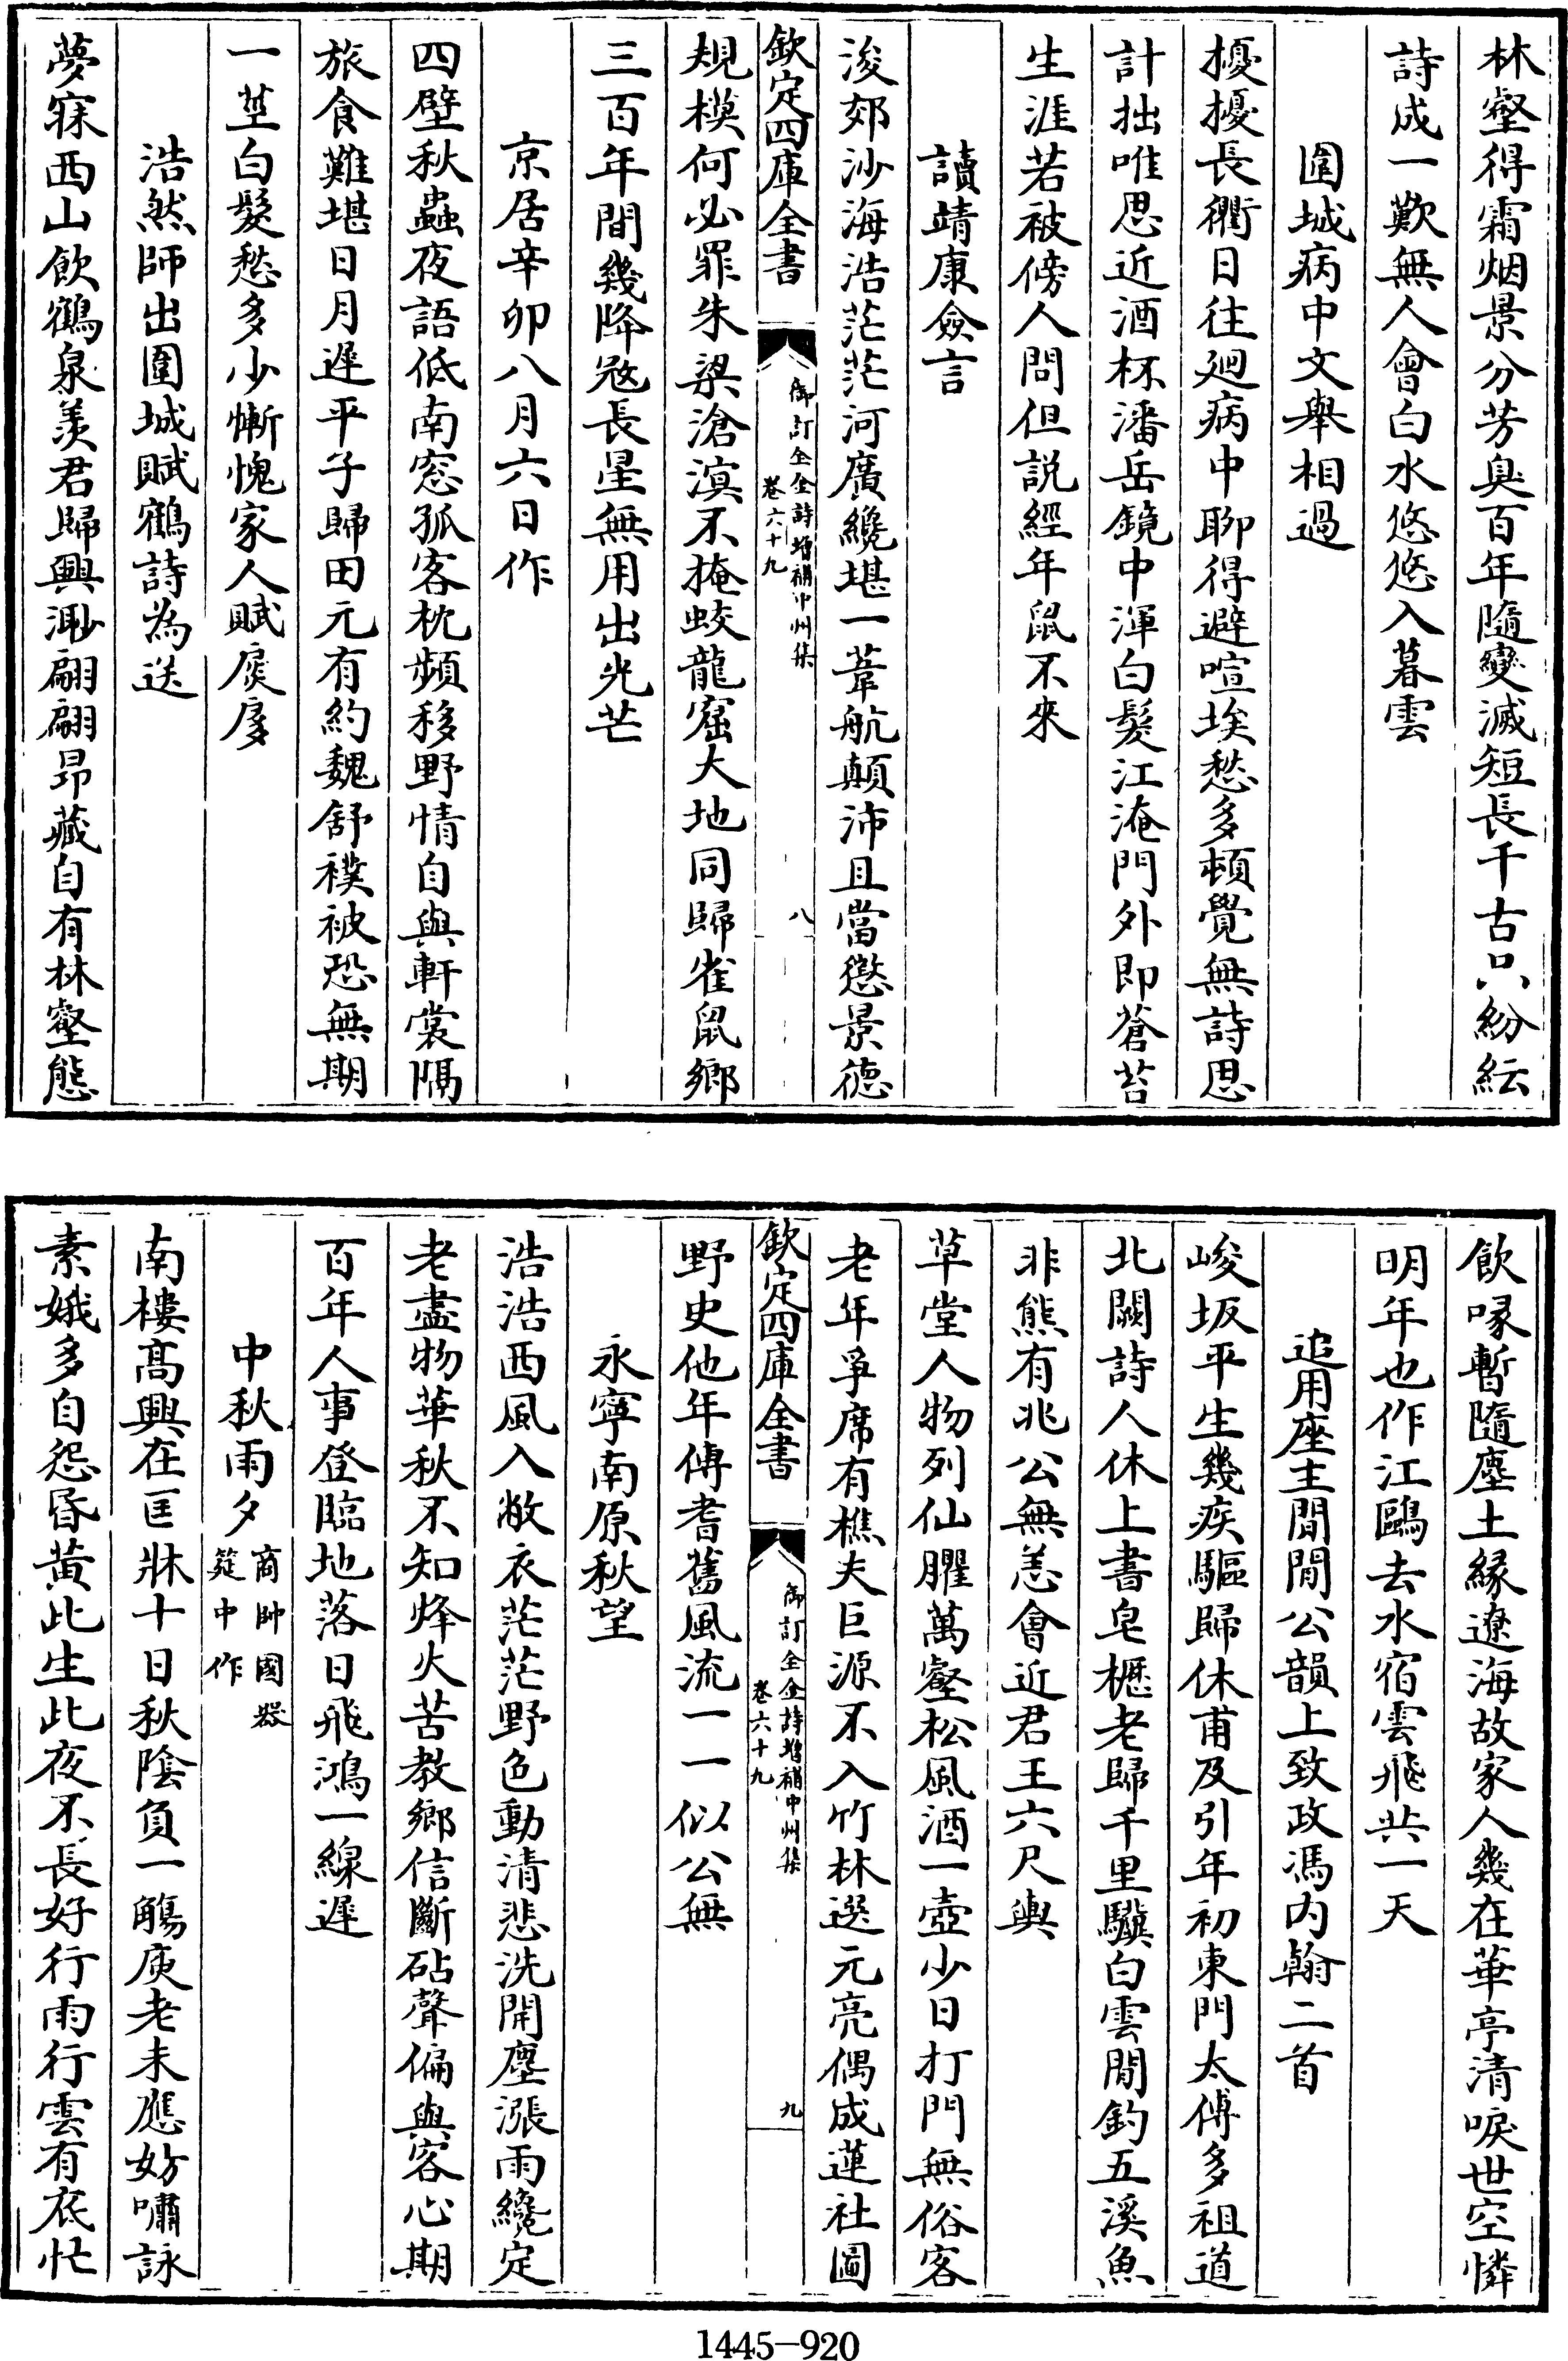 林壑得霜烟景分芳臭百年隨變滅短長千古只紛紜
詩成一歎無人會白水悠悠入暮雲
圍城病中文舉相過
擾擾長衢日往廻病中聊得避喧埃愁多頓覺無詩思
計拙唯思近酒杯潘岳鏡中渾白髮江淹門外即蒼苔
生涯若被傍人問但説經年鼠不來
讀靖康僉言
浚郊沙海浩茫茫河廣纔堪一葦航顛沛且當懲景德
欽定四庫全書
御訂全金詩增補中州集
卷六十九
八
規模何必罪朱梁滄溟不掩蛟龍窟大地同歸雀鼠鄉
三百年間幾降冦長星無用出光芒
京居辛卯八月六日作
四壁秋蟲夜語低南窓孤客枕頻移野情自與軒裳隔
旅食難堪日月遲平子歸田元有約魏舒襆被恐無期
一莖白髮愁多少慚愧家人賦扊扅
浩然師出圍城賦鶴詩為送
夢寐西山飲鶴泉羨君歸興渺翩翩昂藏自有林壑態
飲啄暫隨塵土緣遼海故家人幾在華亭清唳世空憐
明年也作江鷗去水宿雲飛共一天
追用座主閒閒公韻上致政馮内翰二首
峻坂平生幾疾驅歸休甫及引年初東門太傅多祖道
北闕詩人休上書皂櫪老歸千里驥白雲閒釣五溪魚
非熊有兆公無恙會近君王六尺輿
草堂人物列仙臞萬壑松風酒一壺少日打門無俗客
老年爭席有樵夫巨源不入竹林選元亮偶成蓮社圖
欽定四庫全書
御訂全金詩增補中州集
卷六十九
九
野史他年傳耆舊風流一一似公無
永寧南原秋望
浩浩西風入敝衣茫茫野色動清悲洗開塵漲雨纔定
老盡物華秋不知烽火苦教鄉信斷砧聲偏與客心期
百年人事登臨地落日飛鴻一線遲
中秋雨夕商帥國器筵中作
南樓髙興在匡牀十日秋陰負一觴庾老未應妨嘯詠
素娥多自怨昏黄此生此夜不長好行雨行雲有底忙
1445-920